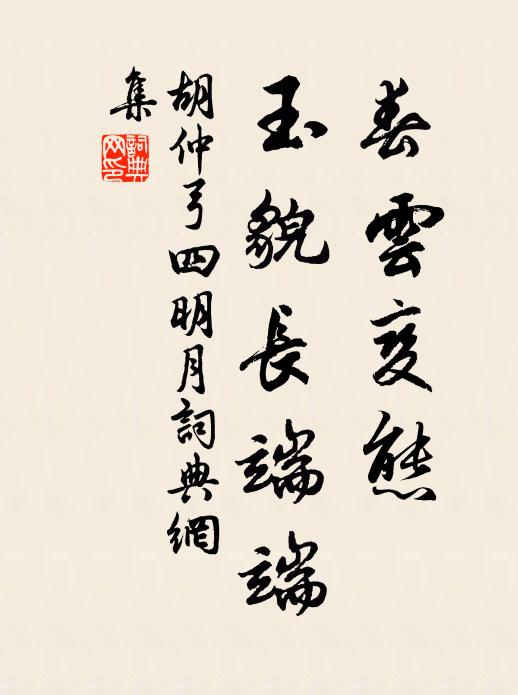 春雲变態
玉貌長端端
胡仲弓四明月詞典網
集
詞典网印